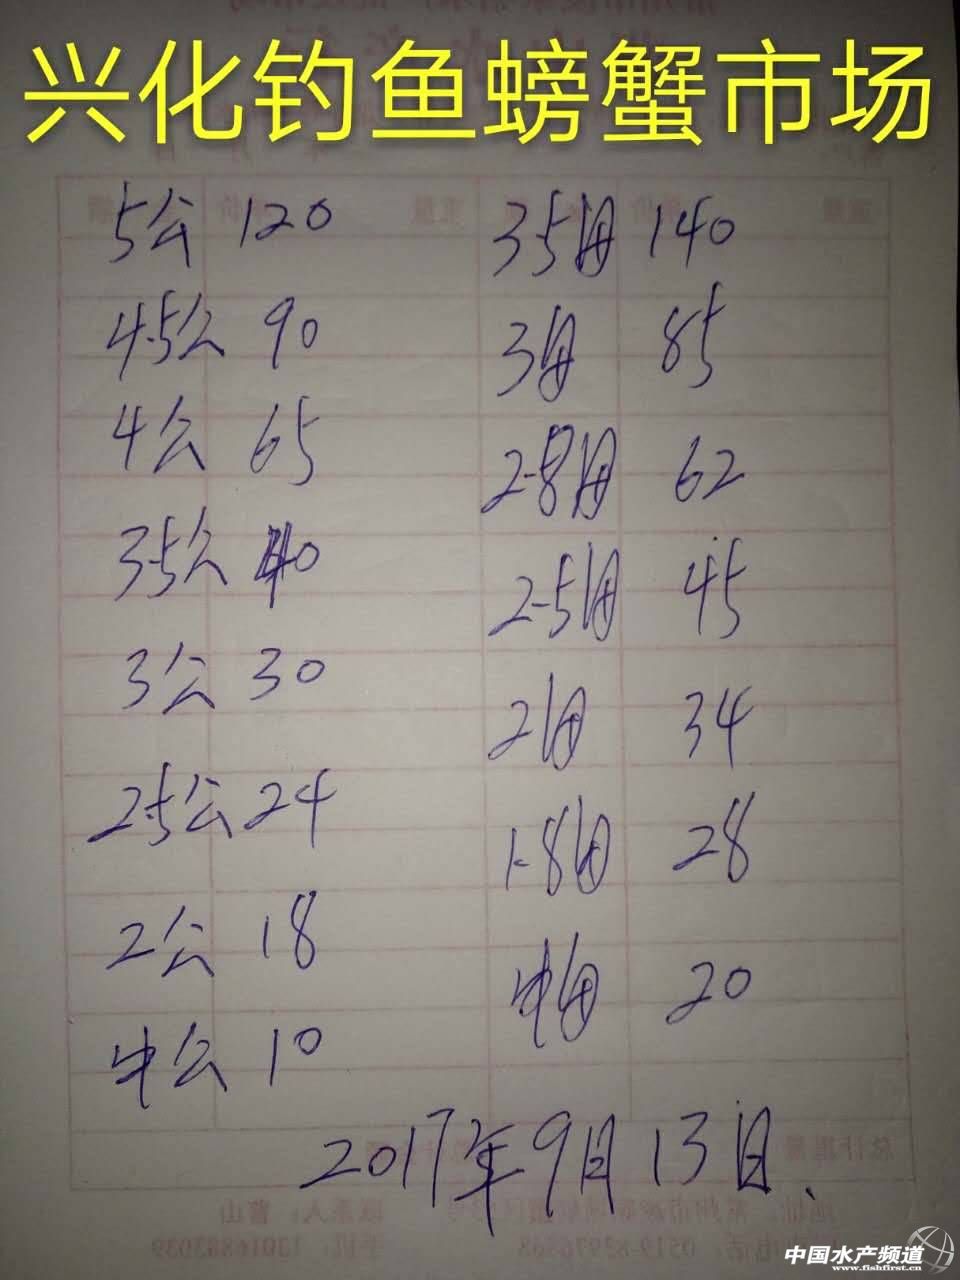 兴化钓鱼螃蟹市场
5公 120
4.5公 90
4公 65
3.5公 40
3公 30
2.5公 24
2公 18
中公 10
3.5母 140
3母 85
2.8母 62
2.5母 45
2母 34
1.8母 28
中母 20
2017年9月13日.
中国水产频道
www.fishfirst.cn